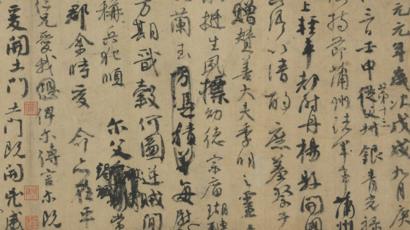 元元年歲次戊戌九月庚
三日壬申第十三從父銀青光祿
持節蒲州諸軍事蒲州
上輕車都尉丹楊縣開國
卿以清酌庶羞祭于
贈贊善大夫季明之靈
挺生夙標幼德宗廟瑚
蘭玉方憑積善每慰
方期戩穀何圖逆賊間
稱兵犯順爾父常
郡余時受命亦在平
仁兄愛我俾爾傳言爾既
爰開土門土門既開凶威